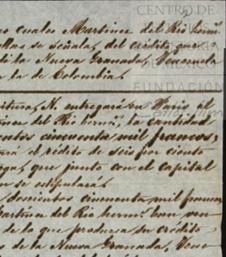 CENTRO DE
os cuales Martinez del Rio herm.
ellas se señala, del crédito que
de la Nueva Granada, Venezuela
a la de Colombia.
FUNDACIÓN
N. entregará en Paris al
del Rio herm.s, la cantidad
cincuenta mil francos;
el rédito de seis por ciento
que junto con el capital
se estipulará.
doscientos cincuenta mil francos,
Martinez del Rio herm.s han
de lo que produzca su crédito
de la Nueva Granada, Vene